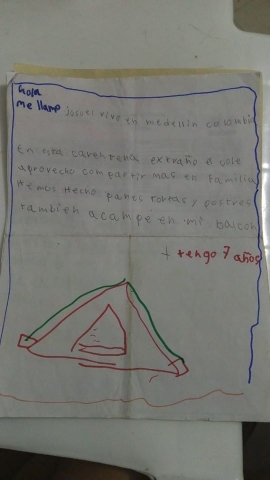 hola
me llamo josue vivo en medellin colombia
En esta carentena extraño el cole
aprovecho compartir mas en familia
Hemos Hecho panes tortas y postres
tambien acampe en mi balcon
+ tengo 7 años